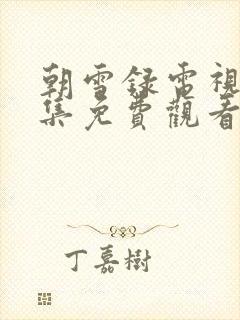 朝雪録電視
集免費觀看
丁嘉樹